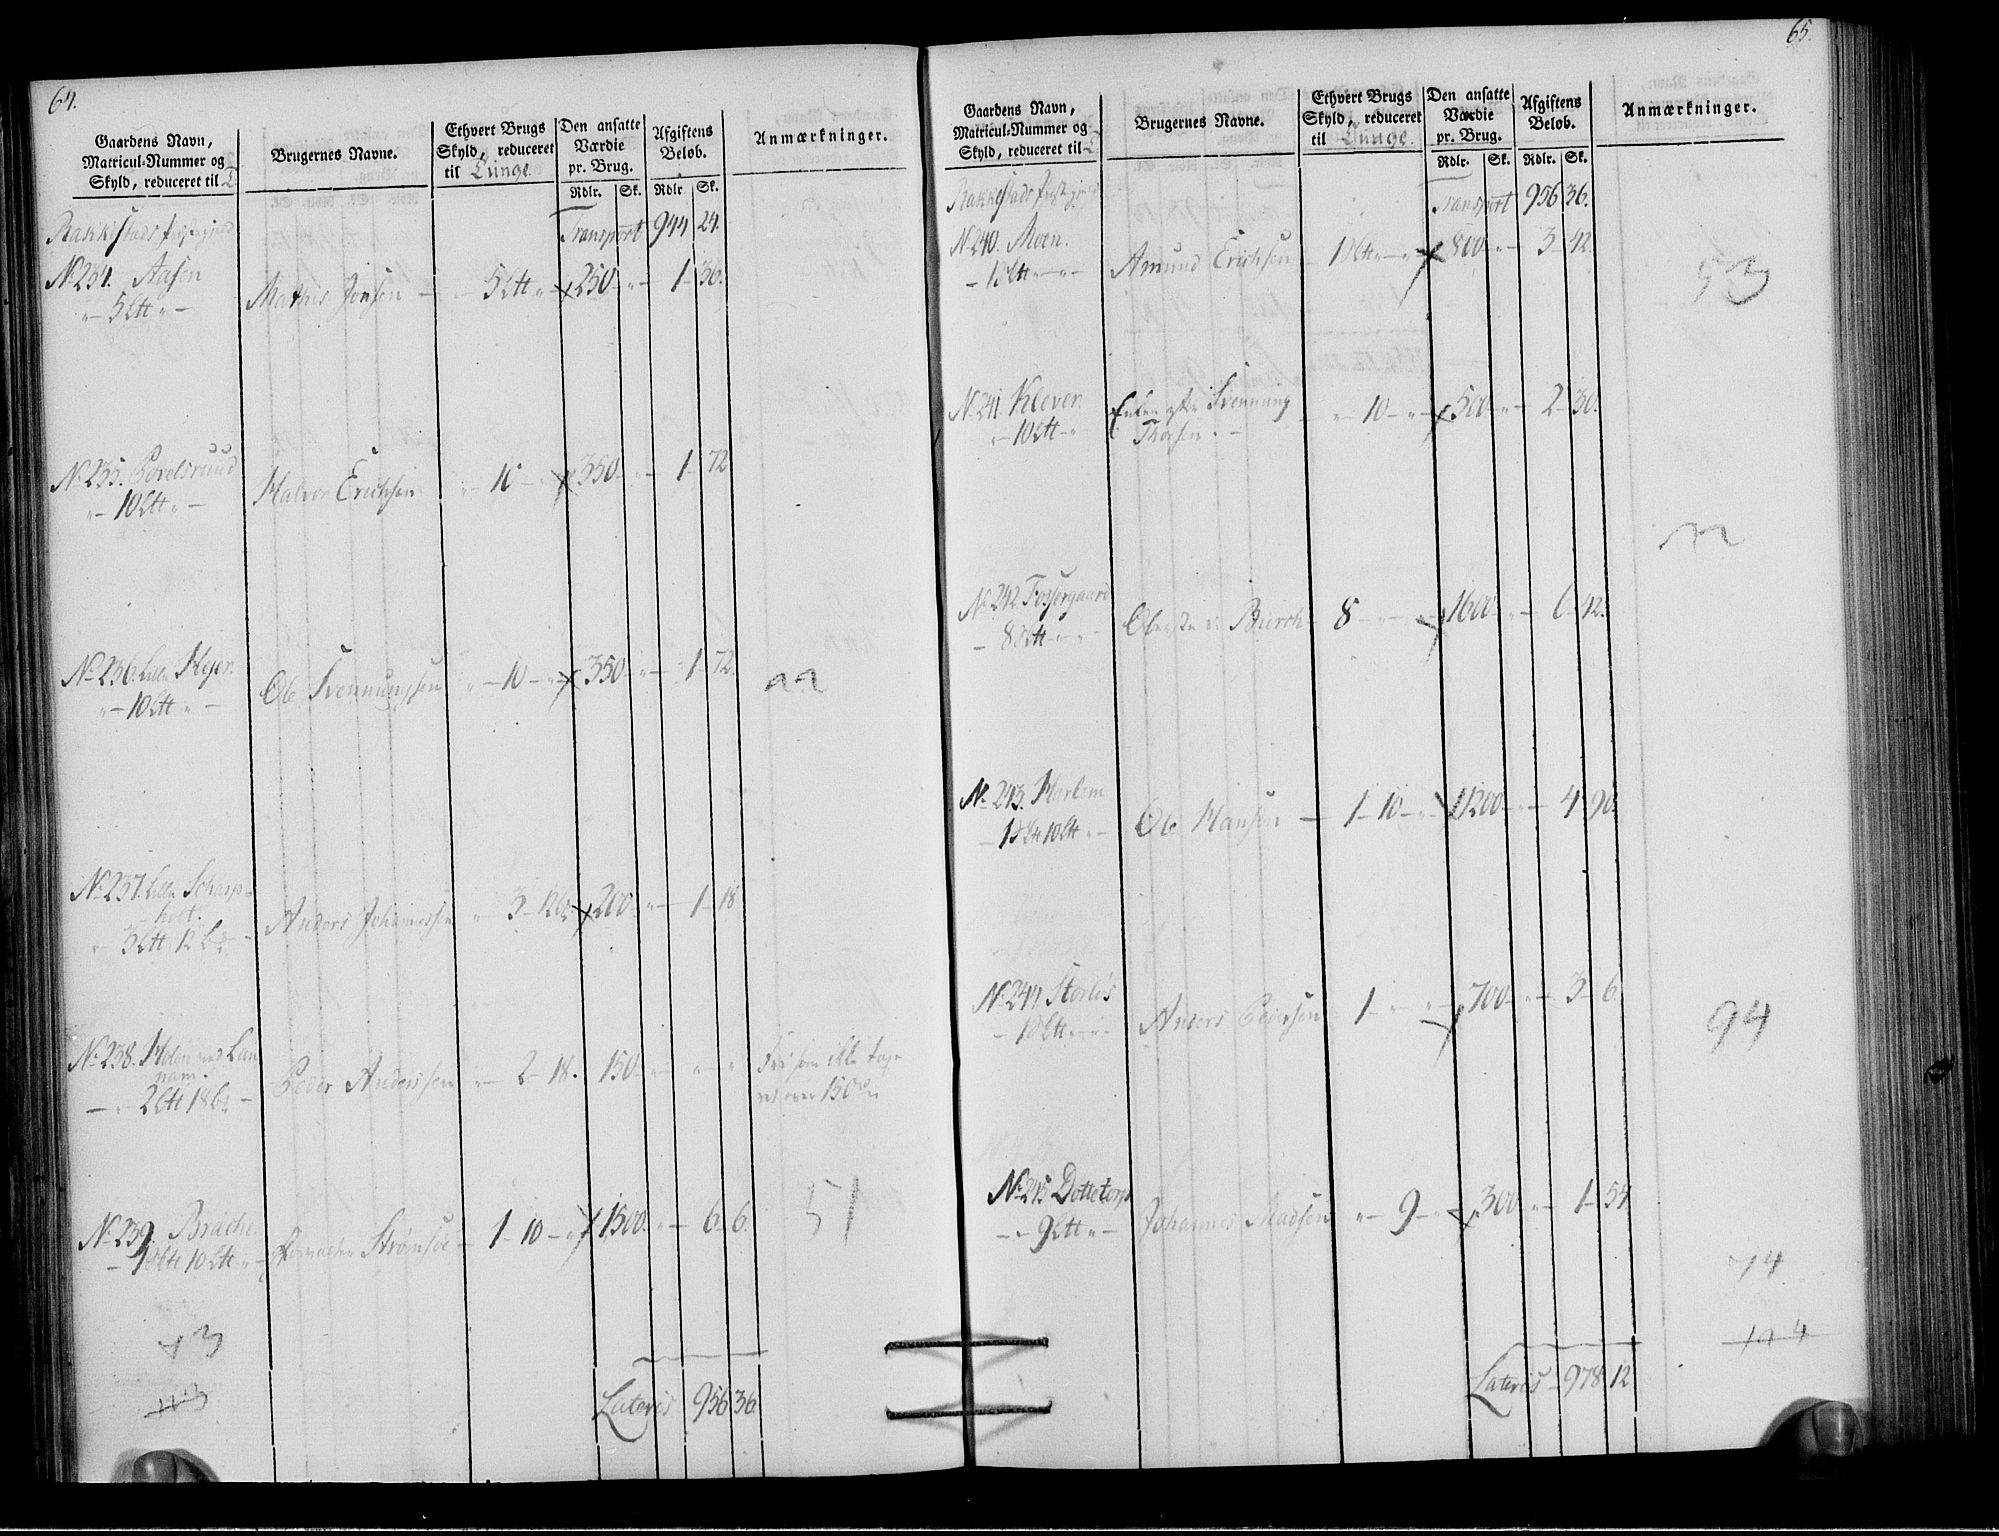 64.
Gaardens Navn,
Matricul-Nummer og
Skyld, reduceret til L
Brugernes Navne.
Ethvert Brugs
Skyld, reduceret
til Tünge
Den ansatte
Værdie
pr. Brug.
Rdlr. Sk.
Afgiftens
Beløb.
Rdlr. Sk.
Anmærkninger.
Rakkestads Præstegield
Transport 944 24.
No 234. Aasen
Mathis Jonsen — 5 Ltt „ — 250 „ — 1 — 36.
„ — 5 Ltt „ —
No 235. Povelsruud
Halvor Erichsen „ — 10 — 350 „ — 1 — 72
„ — 10 Ltt „ —
No 236. Lille Kjer.
Ole Svennungsen „ — 10 — „ 350 „ — 1 — 72.
„ — 10 Ltt „ —
No 237. Lille Scharp-
holt.
Anders Johannessen „ 3 — 12 200 „ — 1 — 18
„ 3 Ltt 12
No 238. Holen med Lan
nam.
Peder Anderssen „ — 2 — 18. 150 „ — „ „
2 Ltt 18
Fri som ikke tax
over 150
No 239. Brache.
Strømsøe — 1 — 10 — „ 1500. „ — 6 — 6.
10 Ltt „ —
51
43
Lateris 956 36.
65.
Gaardens Navn,
Matricul-Nummer og
Skyld, reduceret til L
Brugernes Navne.
Ethvert Brugs
Skyld, reduceret
til Tünge.
Den ansatte
Værdie
pr. Brug.
Rdlr. Sk.
Afgiftens
Beløb.
Rdlr. Sk.
Anmærkninger.
Rakkestads Præstegield
Transport 956 36.
No 240. Moen.
Amund Erichsen — 800 „ — 3 — 42.
53
No 241. Klever.
Enken efter Svennung
Thorsen. —
„ — 10 — „ — 500 „ — 2 — 30.
„ — 10 Ltt — „
No 242. Fossergaard
Oberste v. Bierch — 8 — „ — 1600 „ — 6 — 42.
No 243. Harlem
Ole Hansen — 1 — 10 — „ 1200 „ — 4 90.
10 Ltt „ —
No 244. Storlös
Anders Pedersen — 1 — „ — 700 „ — 3 — 6.
94
No 245 Dottetorp
Johannes Madsen „ — 9 — „ — 300 „ — 1 — 54.
— „ — 9 Ltt „ —
74
Lateris — 978 12